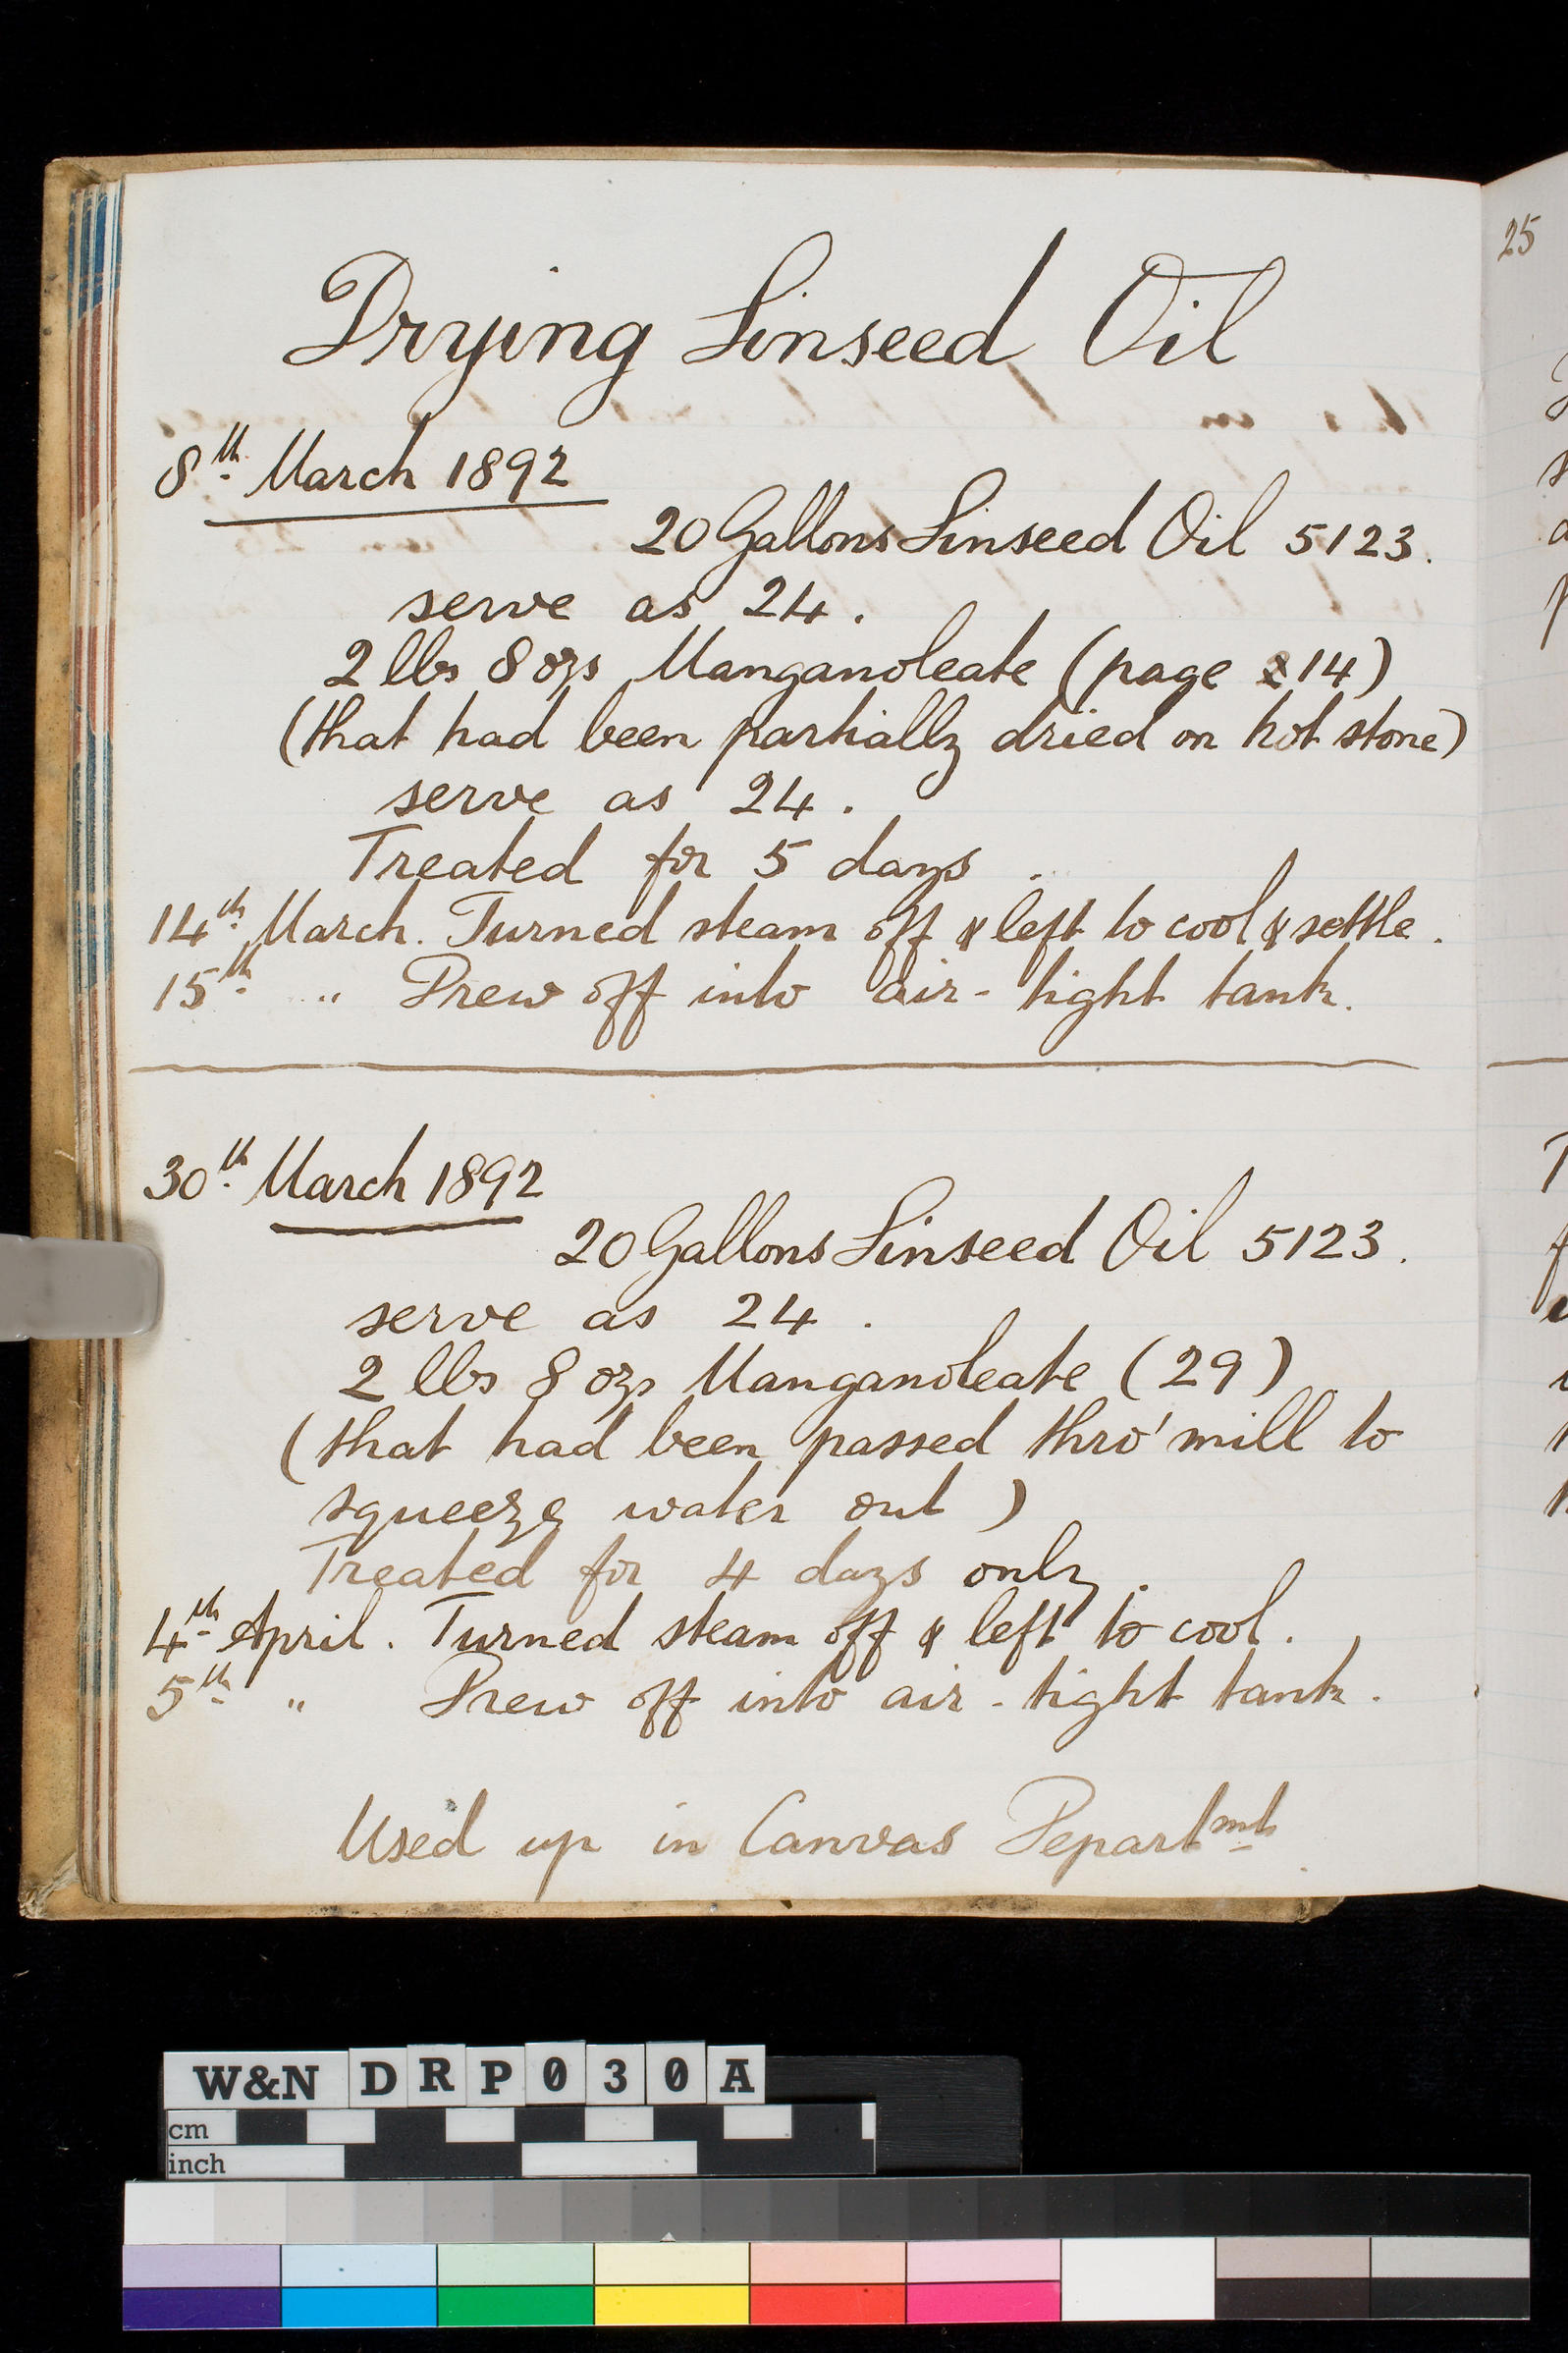 Drying Linseed Oil
8th March 1892
20 Gallons Linseed Oil 5123.
serve as 24.
2 lbs 8 ozs Manganoleate (page 14)
(that had been partially dried on hot stone)
serve as 24.
Treated for 5 days.
14th March. Turned steam off & left to cool & settle.
15th " Drew off into air-tight tank.
30th March 1892
20 Gallons Linseed Oil 5123.
serve as 24.
2 lbs 8 ozs Manganoleate (29)
(that had been passed thro' mill to
squeeze water out)
Treated for 4 days only.
4th April. Turned steam off & left to cool.
5th " Drew off into air-tight tank.
Used up in Canvas Departmt.
25
W&N DRP030A
cm
inch